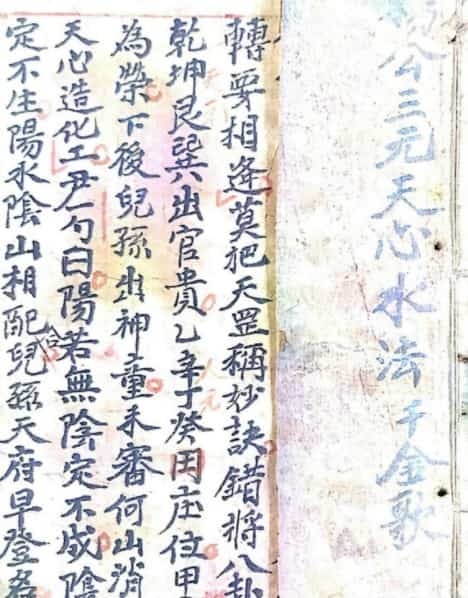 公三元天心水法千金歌
轉要相逢莫把天罡稱妙訣錯將八卦
乾坤艮巽出官貴乙辛丁癸田庄位甲
為榮下後兒孫出神童未審何山消
天心造化工曰陽若無陰定不成陰
定不生陽水陰山相配合兒孫天府早登名